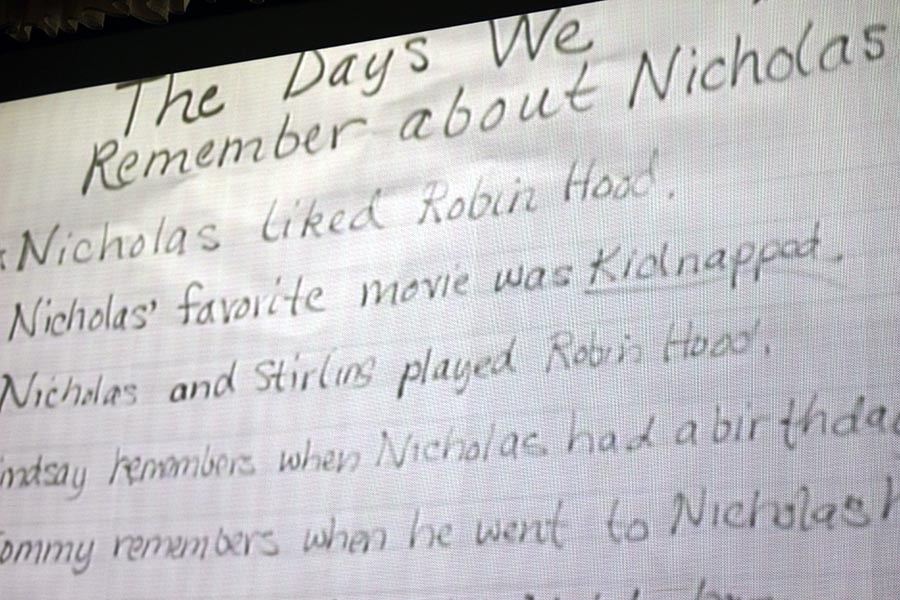 The Days We
Remember about Nicholas
Nicholas liked Robin Hood.
Nicholas' favorite movie was Kidnapped.
Nicholas and Stirling played Robin Hood.
indsay remembers when Nicholas had a birthda
ommy remembers when he went to Nicholas h